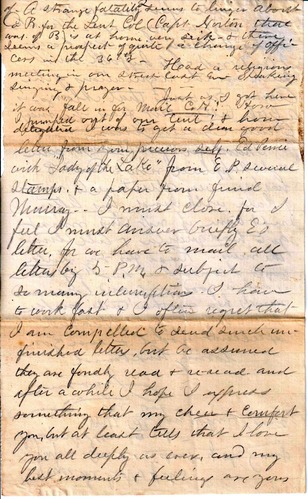 A strange fatality seems to linger about
Co B. for the Lieut Col (Capt Horton that
was of B) is at home very sick & there
seems a prospect of quite a change of offi
cers in the 36th - Had a religious
meeting in our street last evening
singing & prayer - Just as I got here
it was "fall in for Mail C.K."! How
I jumped out of our tent; & how
delighted I was to get a dear good
letter from Your precious self
with "Lady of the Lake" from E.P. several
stamps, & a paper from friend
Murray - I must close, for I
feel I must answer briefly Ed's
letter, for we have to mail all
letters by 5 P.M. & subject to
so many interruptions I have
to work fast & I often regret that
I am compelled to send such un
finished letters, but be assured
they are fondly read & reread and
after a while I hope I express
something that may cheer & comfort
you, but at least tells that I love
you all deeply as ever, and my
best moments & feelings are yours